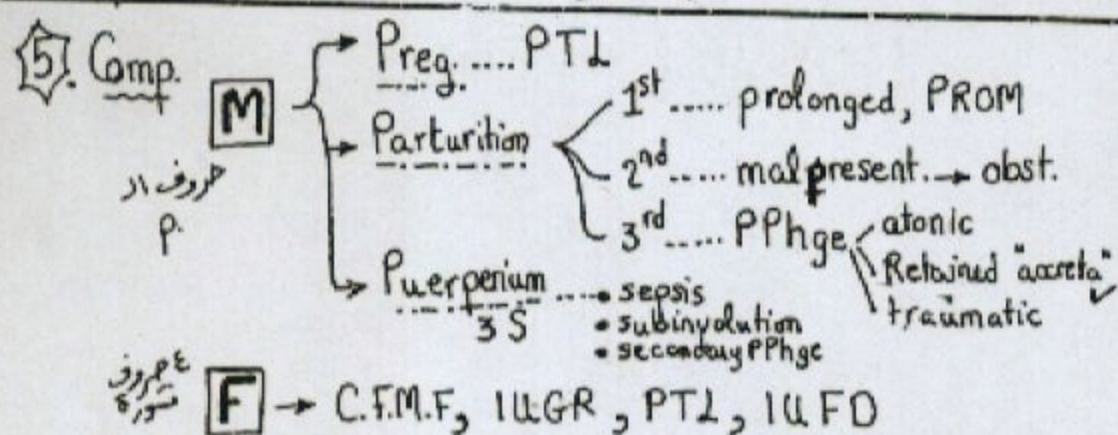 5. Comp.
M
Preg. .... PTL
Parturition
1st ..... prolonged, PROM
2nd ..... malpresent. → obst.
3rd ..... PPhge
atonic
Retained "accreta" ✓
traumatic
حروف ال
P.
Puerperium
3 S
• sepsis
• subinvolution
• secondary PPhge
F → C.F.M.F, IUGR, PTL, IUFD